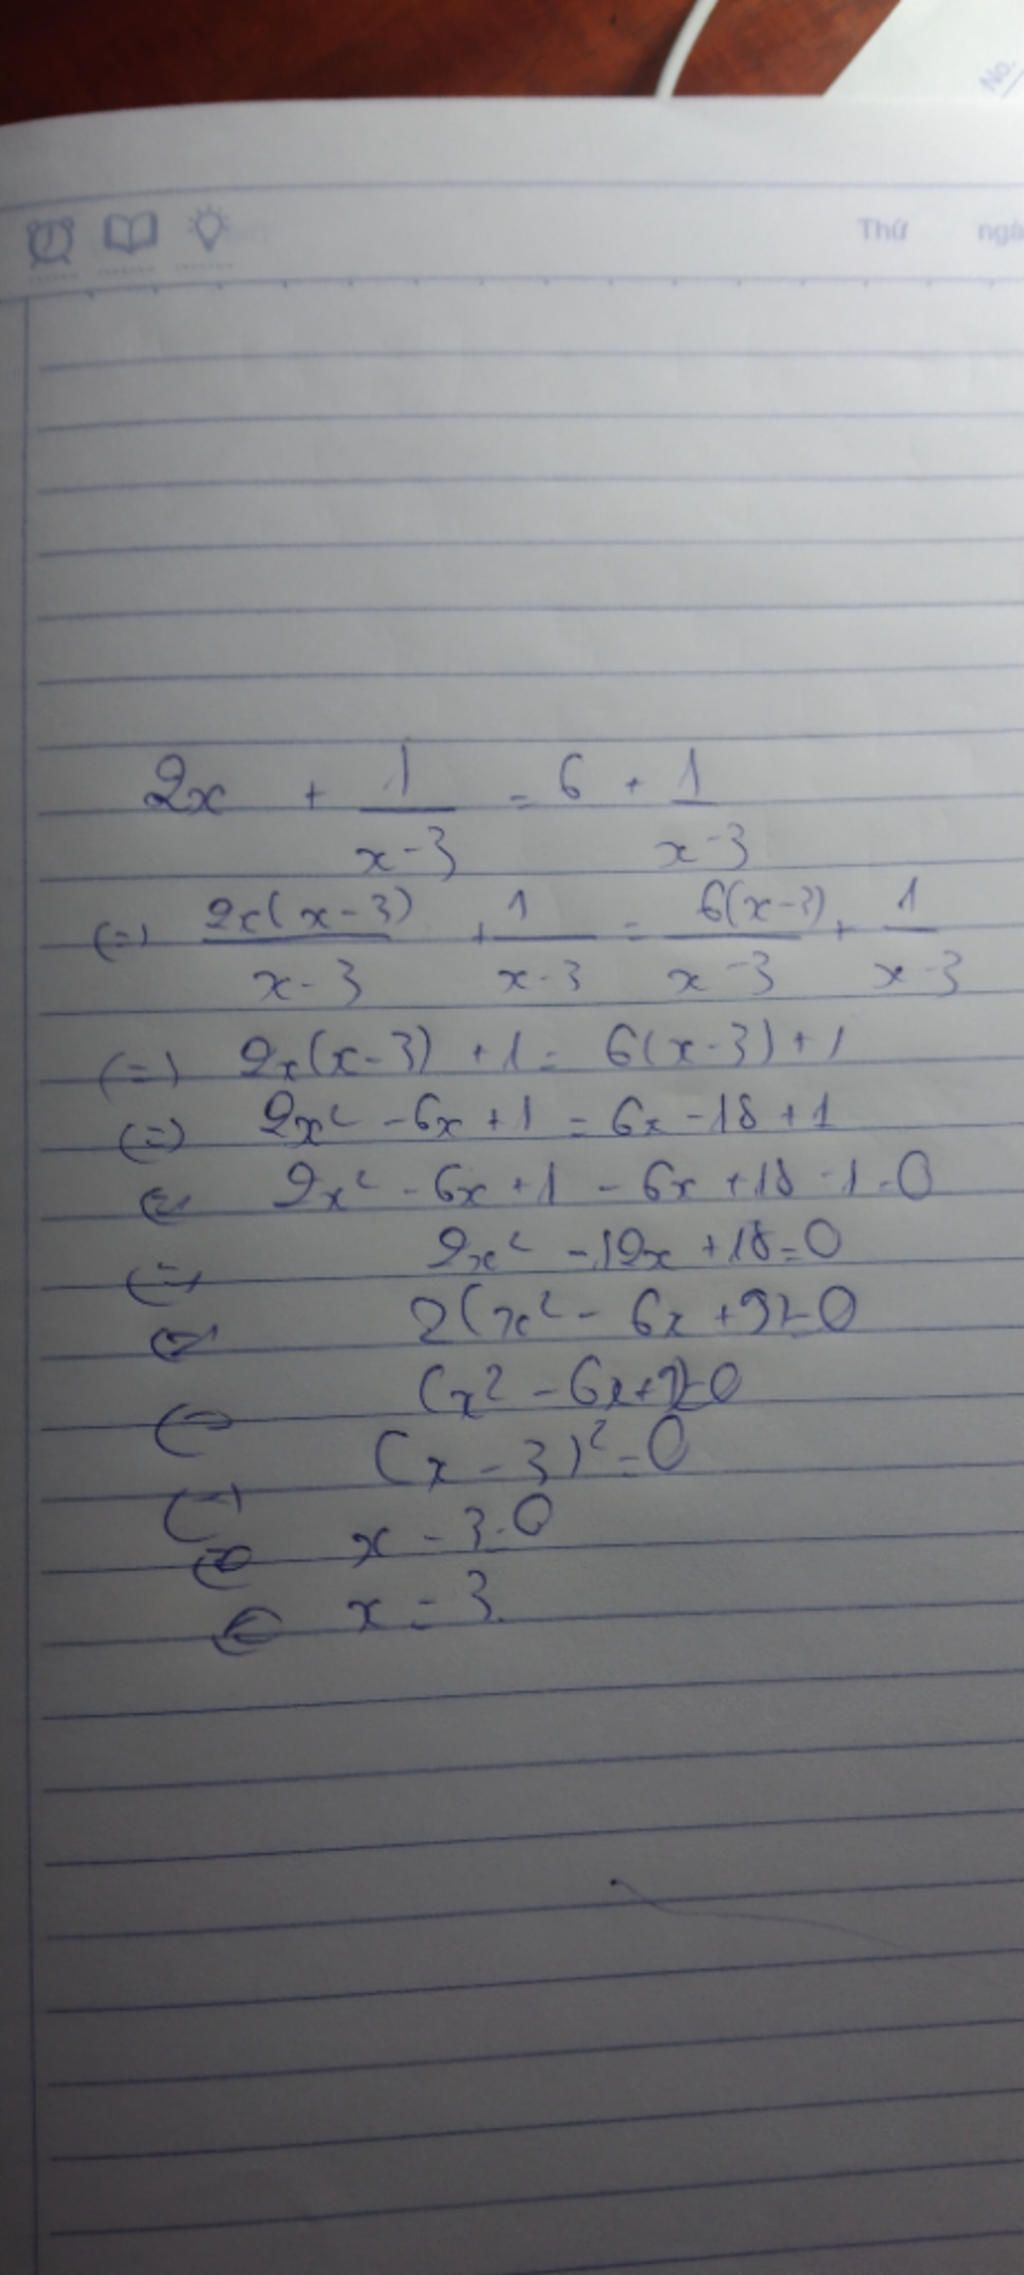 No.
Thứ ngà
2x + 1/(x-3) = 6 + 1/(x-3)
(=) 2x(x-3)/(x-3) + 1/(x-3) = 6(x-3)/(x-3) + 1/(x-3)
(=) 2x(x-3) + 1 = 6(x-3) + 1
(=) 2x² - 6x + 1 = 6x - 18 + 1
(=) 2x² - 6x + 1 - 6x + 18 - 1 = 0
(=) 2x² - 12x + 18 = 0
(=) 2(x² - 6x + 9) = 0
(=) (x² - 6x + 9) = 0
(=) (x - 3)² = 0
(=) x - 3 = 0
(=) x = 3.